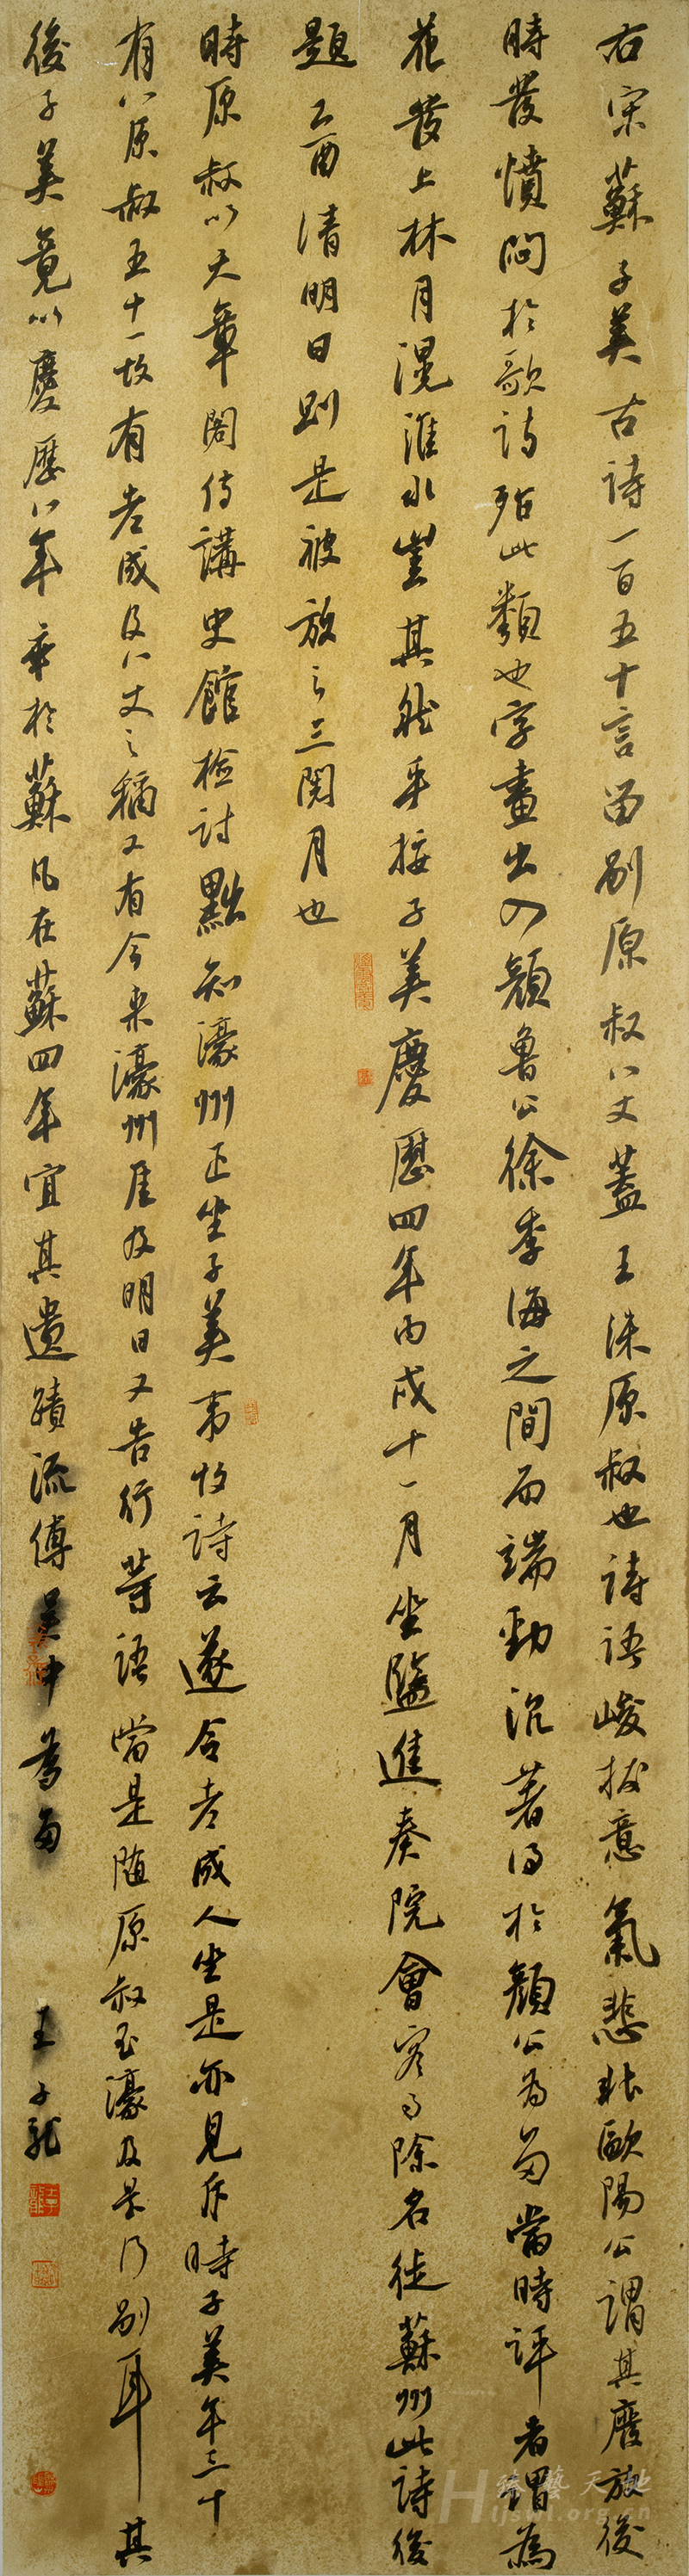 右宋蘇子美古詩一百五十言留别原叔八丈蓋王洙原叔也詩語峻拔意氣悲壯歐陽公謂其廢放後
時發憤悶於歌詩殆此類也字畫出入顏魯公徐季海之間而端勁沉著得於顏公為多當時評者謂為
花發上林月滉淮水豈其然乎按子美慶歷四年丙戌十一月坐監進奏院會客事除名徙蘇州此詩後
題乙酉清明日則是被放之三閱月也
時原叔以天章閣侍講史館檢討黜知濠州正坐子美事故詩云遂令老成人坐是亦見斥時子美年三十
有八原叔五十一故有老成及八丈之稱又有今來濠州厓及明日又告行等語當是隨原叔至濠及是乃别耳其
後子美竟以慶歷八年卒於蘇凡在蘇四年宜其遺蹟流傳吳中為多
王子龍
臻藝天地
Hijswl.org.cn